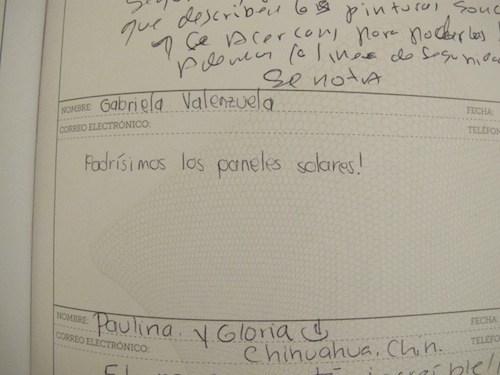 que describen las pinturas
se acercan, para poder las
Además la línea de seguridad
Se nota
NOMBRE: Gabriela Valenzuela FECHA:
CORREO ELECTRÓNICO: TELÉFON
Padrísimos los paneles solares!
NOMBRE: Paulina y Gloria FECHA
CORREO ELECTRÓNICO: TELÉFO
Chihuahua, Chih.
El